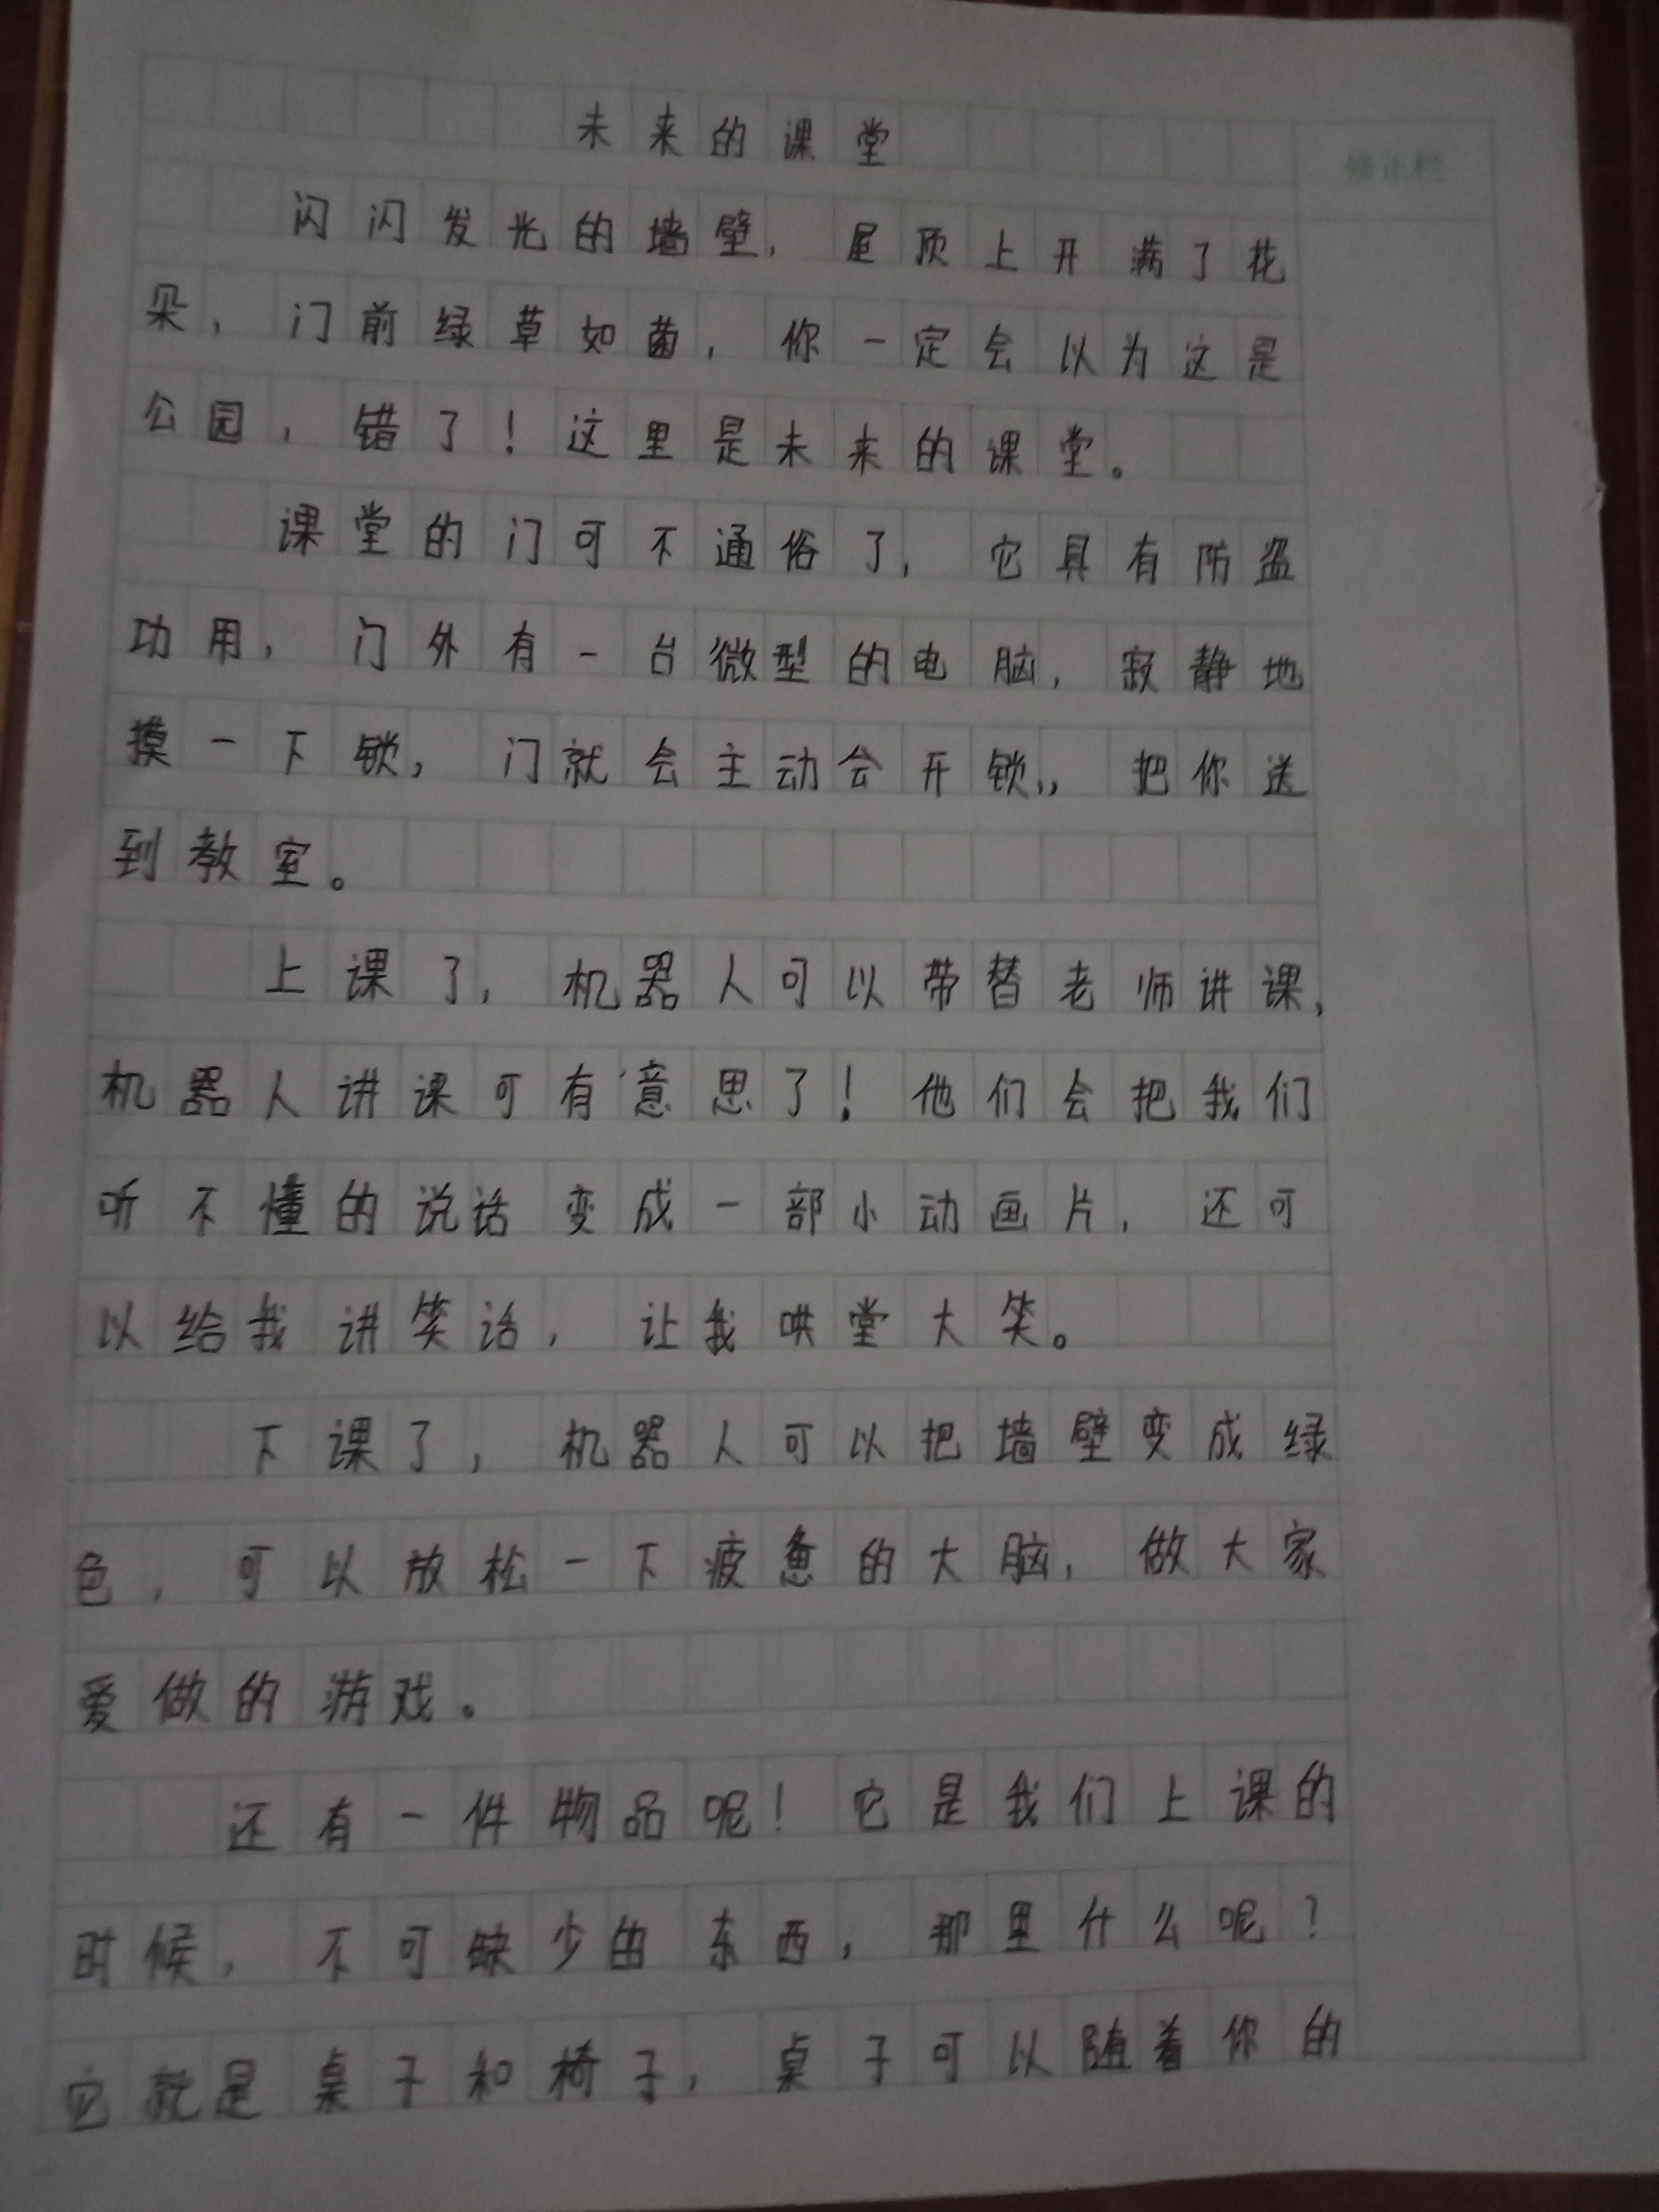 未来的课堂
修正栏
闪闪发光的墙壁，屋顶上开满了花
朵，门前绿草如茵，你一定会以为这是
公园，错了！这里是未来的课堂。
课堂的门可不通俗了，它具有防盗
功用，门外有一台微型的电脑，寂静地
摸一下锁，门就会主动会开锁，，把你送
到教室。
上课了，机器人可以带替老师讲课，
机器人讲课可有意思了！他们会把我们
听不懂的说话变成一部小动画片，还可
以给我讲笑话，让我哄堂大笑。
下课了，机器人可以把墙壁变成绿
色，可以放松一下疲惫的大脑，做大家
爱做的游戏。
还有一件物品呢！它是我们上课的
时候，不可缺少的东西，那里什么呢？
它就是桌子和椅子，桌子可以随着你的